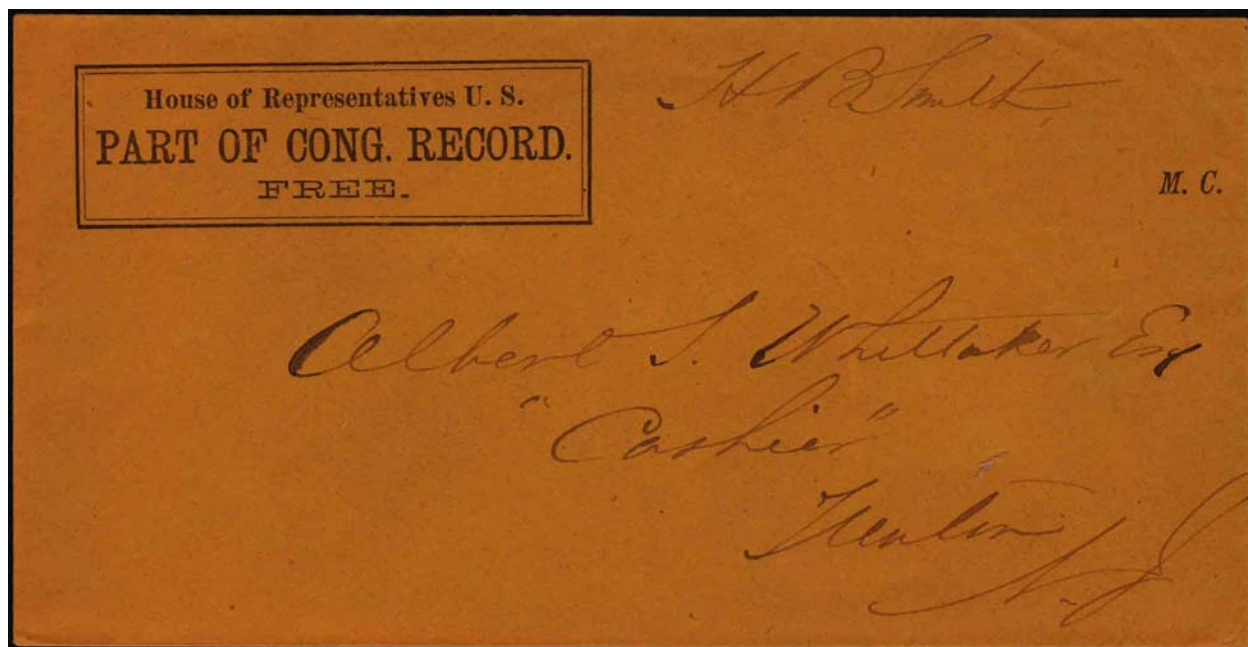 House of Representatives U. S.
PART OF CONG. RECORD.
FREE.
H B Smith
M. C.
Albert S. Whittaker Esq
"Cashier"
Trenton
N. J